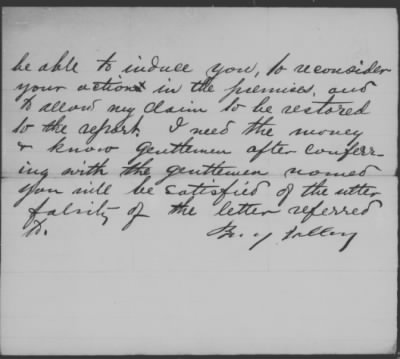 be able to induce you, to reconsider
your action in the premises, and
to allow my claim to be restored
to the report. I need the money
& know gentlemen after conferr-
ing with the gentlemen named
you will be satisfied of the utter
falsity of the letter referred
to.